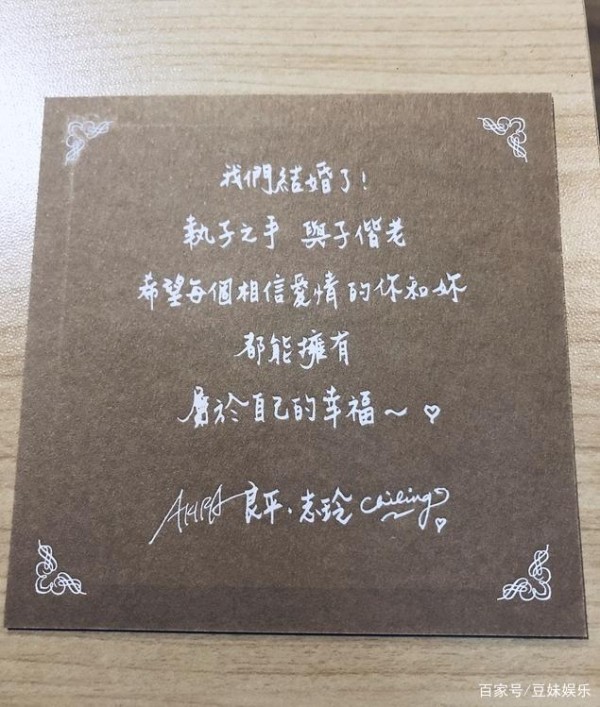 我們結婚了!
執子之手 與子偕老
希望每個相信愛情的你和妳
都能擁有
屬於自己的幸福~♡
AKIRA 良平.志玲 Chiling♡
百家号/豆妹娱乐